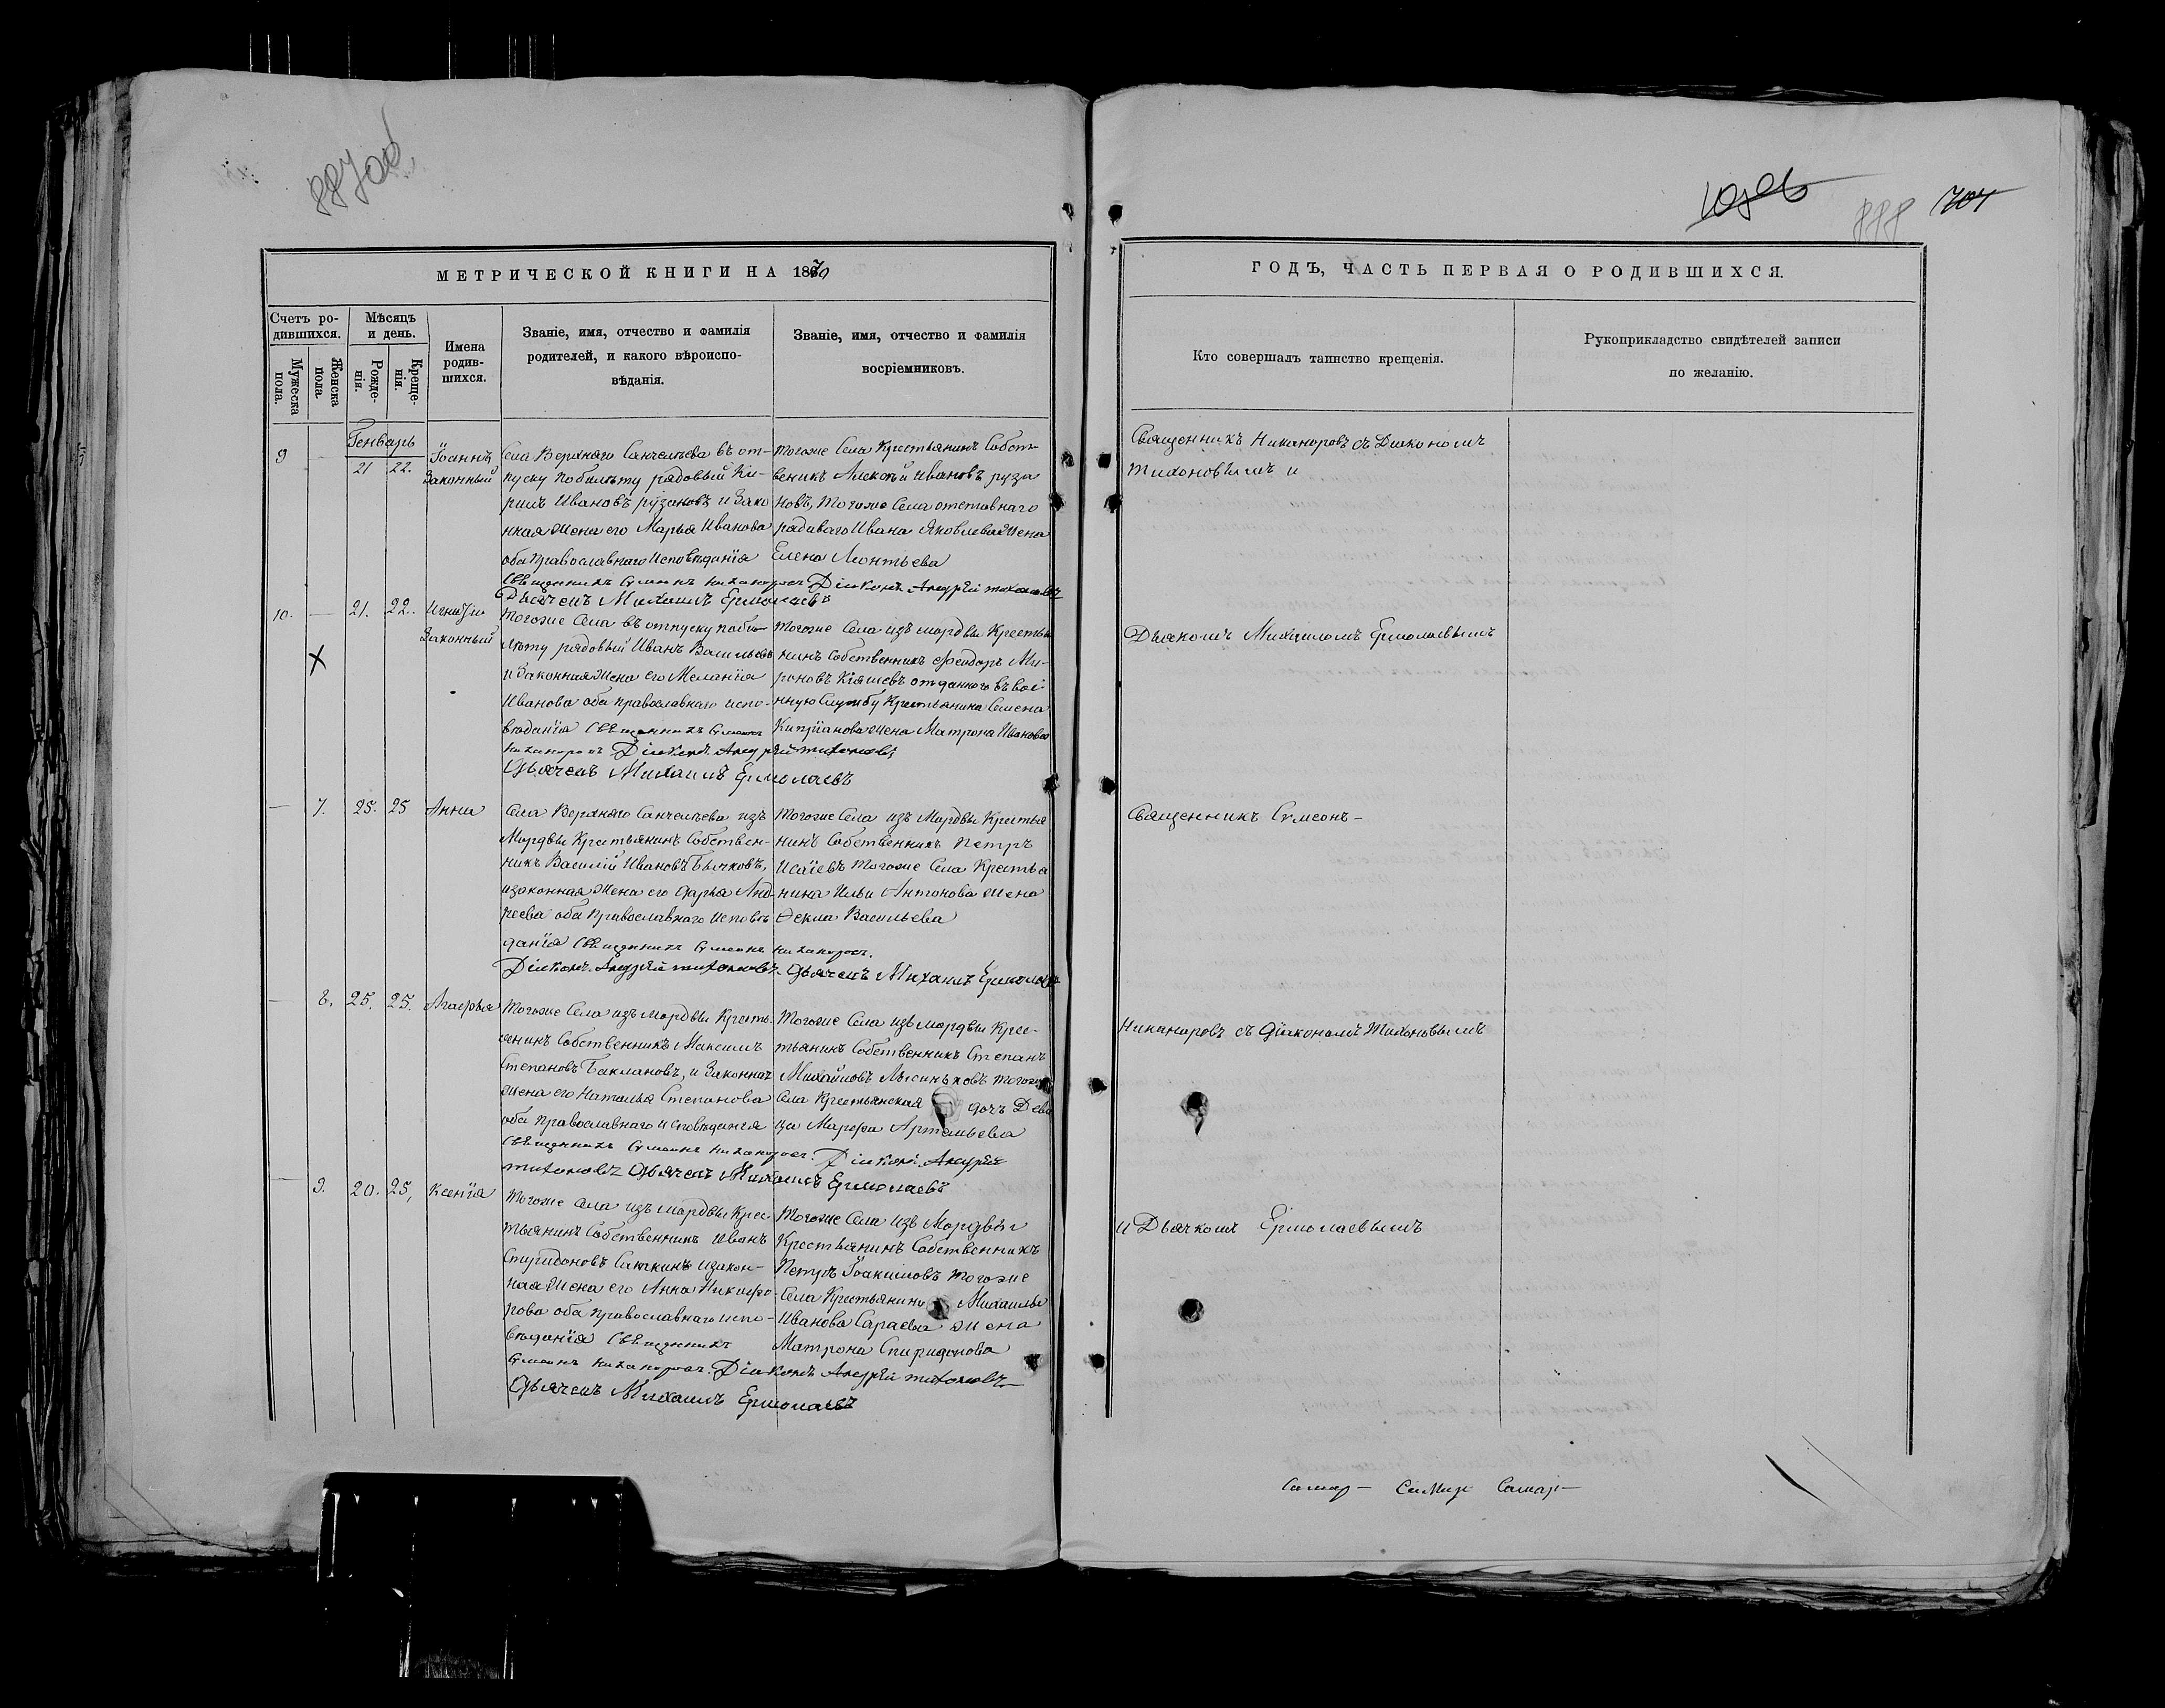 887об
1086
888 704
МЕТРИЧЕСКОЙ КНИГИ НА 1870
ГОДЪ, ЧАСТЬ ПЕРВАЯ О РОДИВШИХСЯ.
Счетъ ро-
дившихся.
Мужеска
пола.
Женска
пола.
Мѣсяцъ
и день.
Рожде-
нія.
Креще-
нія.
Имена
родив-
шихся.
Званіе, имя, отчество и фамилія
родителей, и какого вѣроиспо-
вѣданія.
Званіе, имя, отчество и фамилія
воспріемниковъ.
Кто совершалъ таинство крещенія.
Рукоприкладство свидѣтелей записи
по желанію.
Генварь
9 — 21 22. Іоаннъ
Законный
Села Верхняго Санчелѣева въ от-
пуску побилѣту рядовый Ки-
рилъ Ивановъ рузановъ и Зако
нная Жена его Марья Иванова
оба Православнаго Исповѣданія
Тогоже Села Крестьянинъ Собст-
веникъ Алексѣй Ивановъ руза
новъ, Тогоже Села отставнаго
рядоваго Ивана Яковлева Жена
Елена Леонтьева
Священникъ Сѵмеонъ Никаноровъ Діаконъ Андрей Тихоновъ
Дьячекъ Михаилъ Ермолаевъ
Священникъ Никаноровъ съ Діакономъ
Тихоновымъ и
10. — 21. 22. Игнатій
Законный
Тогоже Села въ отпуску поби-
лѣту рядовый Иванъ Васильевъ
и Законная Жена его Меланія
Иванова оба православнаго испо-
вѣданія Священникъ Сѵмеонъ
Никаноровъ Діаконъ Андрей Тихоновъ
Дьячекъ Михаилъ Ермолаевъ
Тогоже Села изъ мордвы Крестья
нинъ Собственникъ Феодоръ Ми-
роновъ Кіяшевъ отданного въ вое-
нную Службу Крестьянина Семена
Кипріанова Жена Матрона Иванова
Дьячкомъ Михаиломъ Ермолаевымъ
— 7. 25. 25 Анна
Села Верхняго Санчелѣева изъ
Мордвы Крестьянинъ Собствен-
никъ Василій Ивановъ Бычковъ,
изаконная Жена его Дарья Анд-
реева оба Православнаго Исповѣ
данія Священникъ Сѵмеонъ Никаноровъ.
Діаконъ Андрей Тихоновъ Дьячекъ Михаилъ Ермолаевъ
Тогоже Села изъ Мордвы Крестья
нинъ Собственникъ Петръ
Исаіевъ Тогоже Села Крестья
нина Ильи Антонова Жена
Ѳекла Васильева
Священникъ Сѵмеонъ —
— 8. 25. 25. Агафья
Тогоже Села изъ мордвы Кресть-
янинъ Собственникъ Максимъ
Степановъ Баклановъ, и Законная
Жена его Наталья Степанова
оба Православнаго исповѣданія
Священникъ Сѵмеонъ Никаноровъ. Діаконъ Андрей
Тихоновъ Дьячекъ Михаилъ Ермолаевъ
Тогоже Села изъ мордвы Крес-
тьянинъ Собственникъ Степанъ
Михайловъ Лысинковъ тогоже
Села Крестьянская дочь Деви
ца Марфа Артемьева
Никаноровъ съ Діакономъ Тихоновымъ
— 9. 20. 25, Ксенія
Тогоже Села изъ мордвы Крес
тьянинъ Собственникъ Иванъ
Спиридоновъ Саткинъ изакон-
ная Жена его Анна Никифо-
рова оба православнаго испо-
вѣданія Священникъ
Сѵмеонъ Никаноровъ. Діаконъ Андрей Тихоновъ
Дьячекъ Михаилъ Ермолаевъ
Тогоже Села изъ Мордвы
Крестьянинъ Собственникъ
Петръ Іоакимовъ тогоже
Села Крестьянина Михаилы
Иванова Сараева Жена
Матрона Спиридонова
и Дьячкомъ Ермолаевымъ